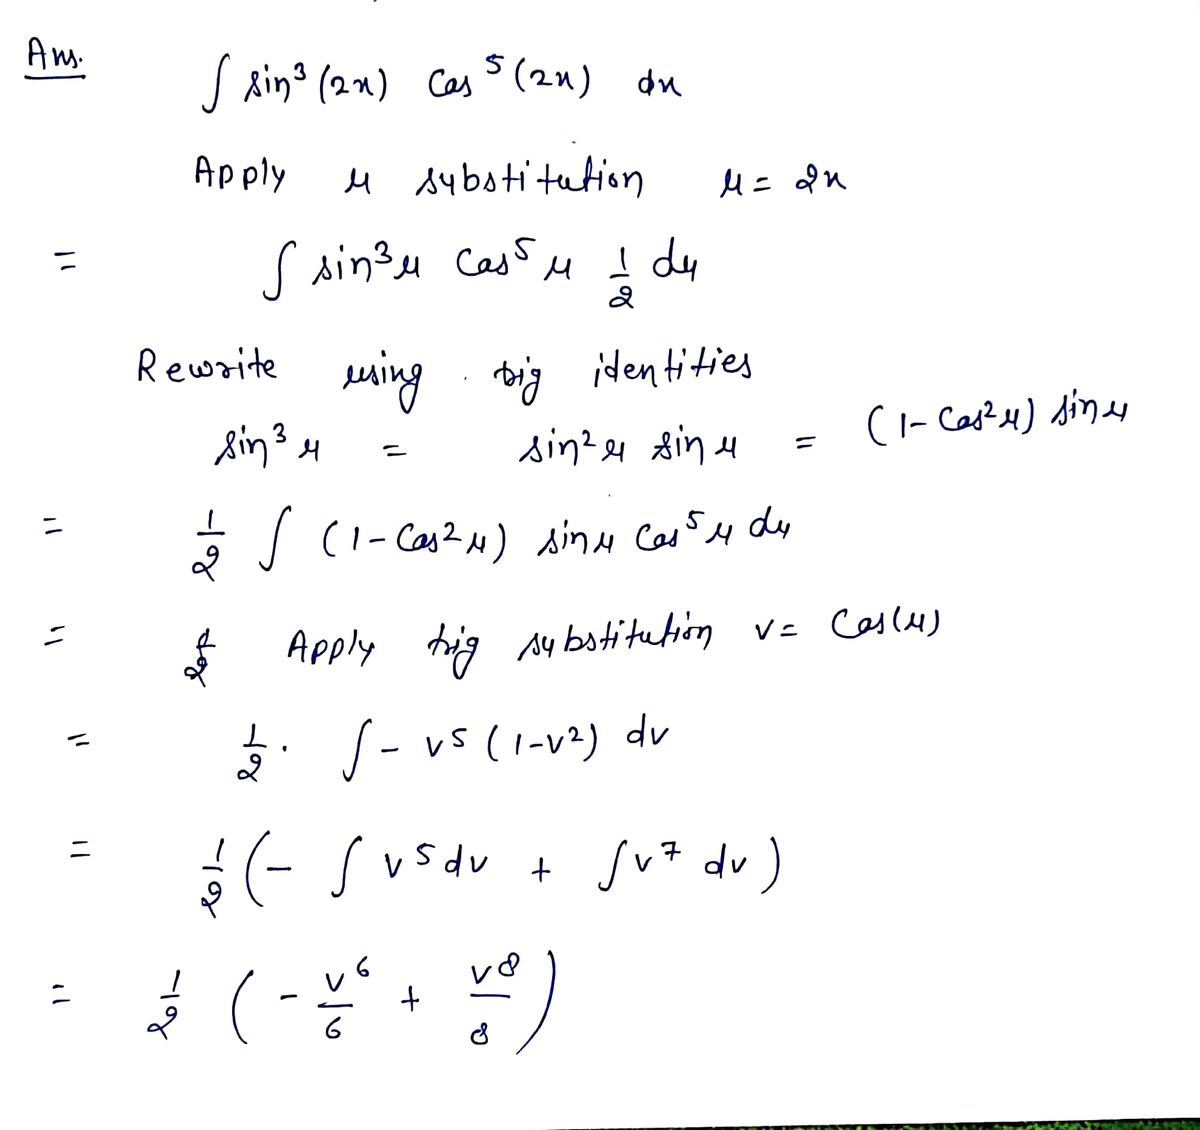 Ans.
∫ sin³(2x) cos⁵(2x) dx
Apply u substitution u = 2x
= ∫ sin³u cos⁵u 1/2 du
Rewrite using trig identities
sin³u = sin²u sin u = (1-cos²u) sin u
= 1/2 ∫ (1-cos²u) sin u cos⁵u du
= Apply trig substitution v = cos(u)
= 1/2 · ∫ - v⁵ (1-v²) dv
= 1/2 (- ∫ v⁵ dv + ∫ v⁷ dv)
= 1/2 (- v⁶/6 + v⁸/8)